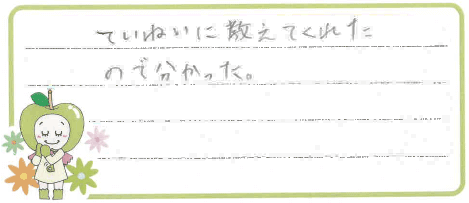 ていねいに教えてくれた
ので分かった。